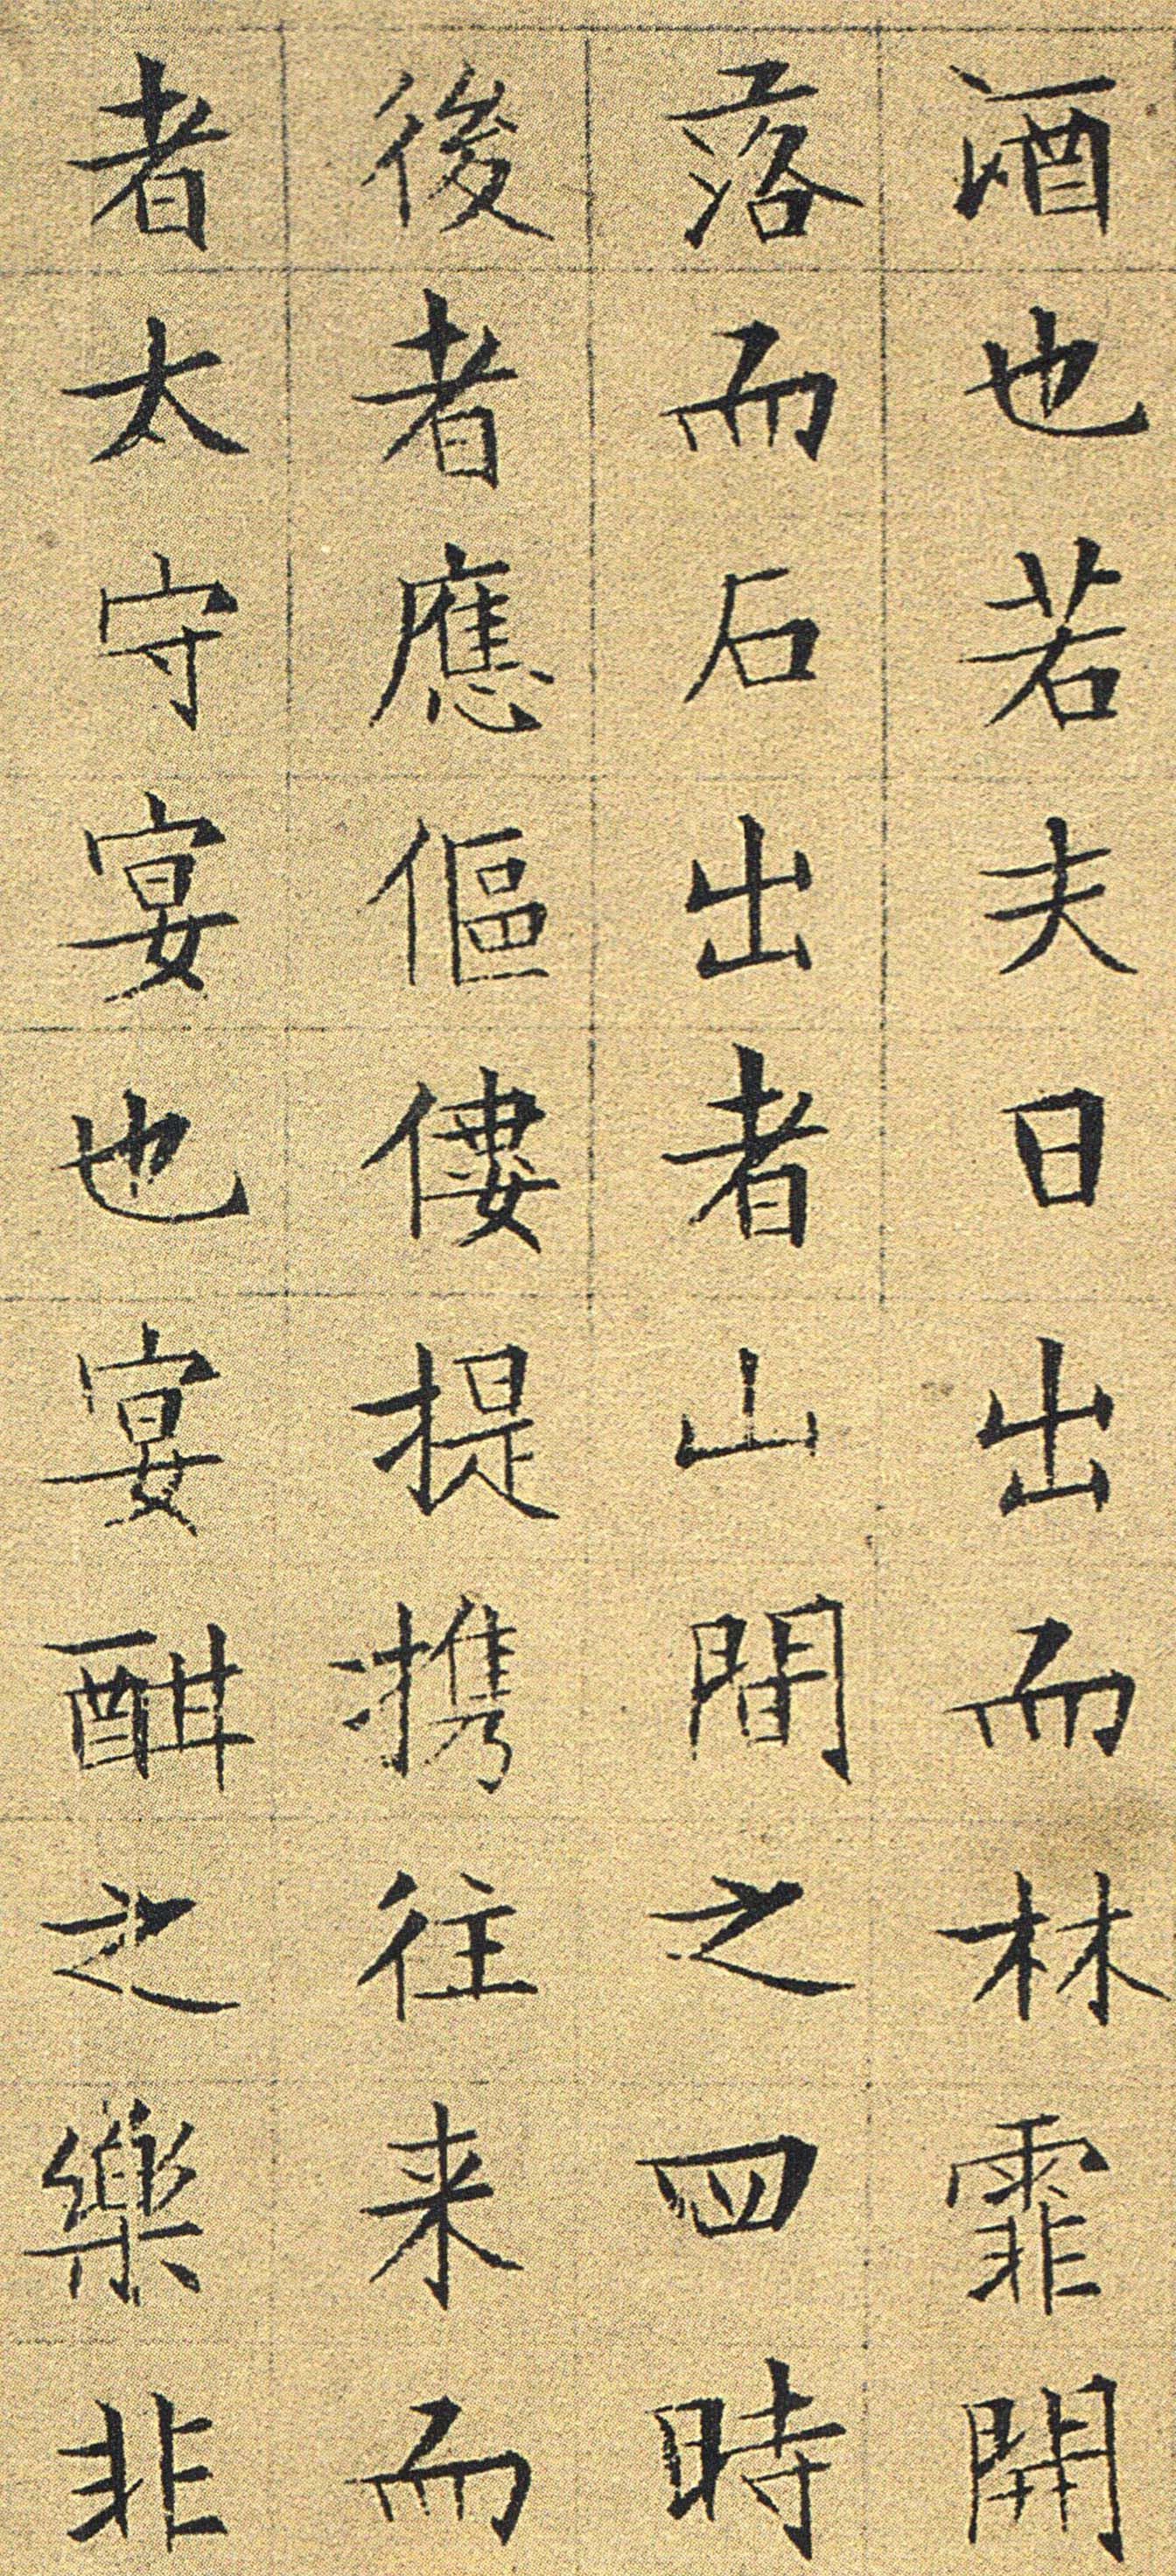 酒也若夫日出而林霏開
落而石出者山間之四時
後者應傴僂提携往来而
者太守宴也宴酣之樂非